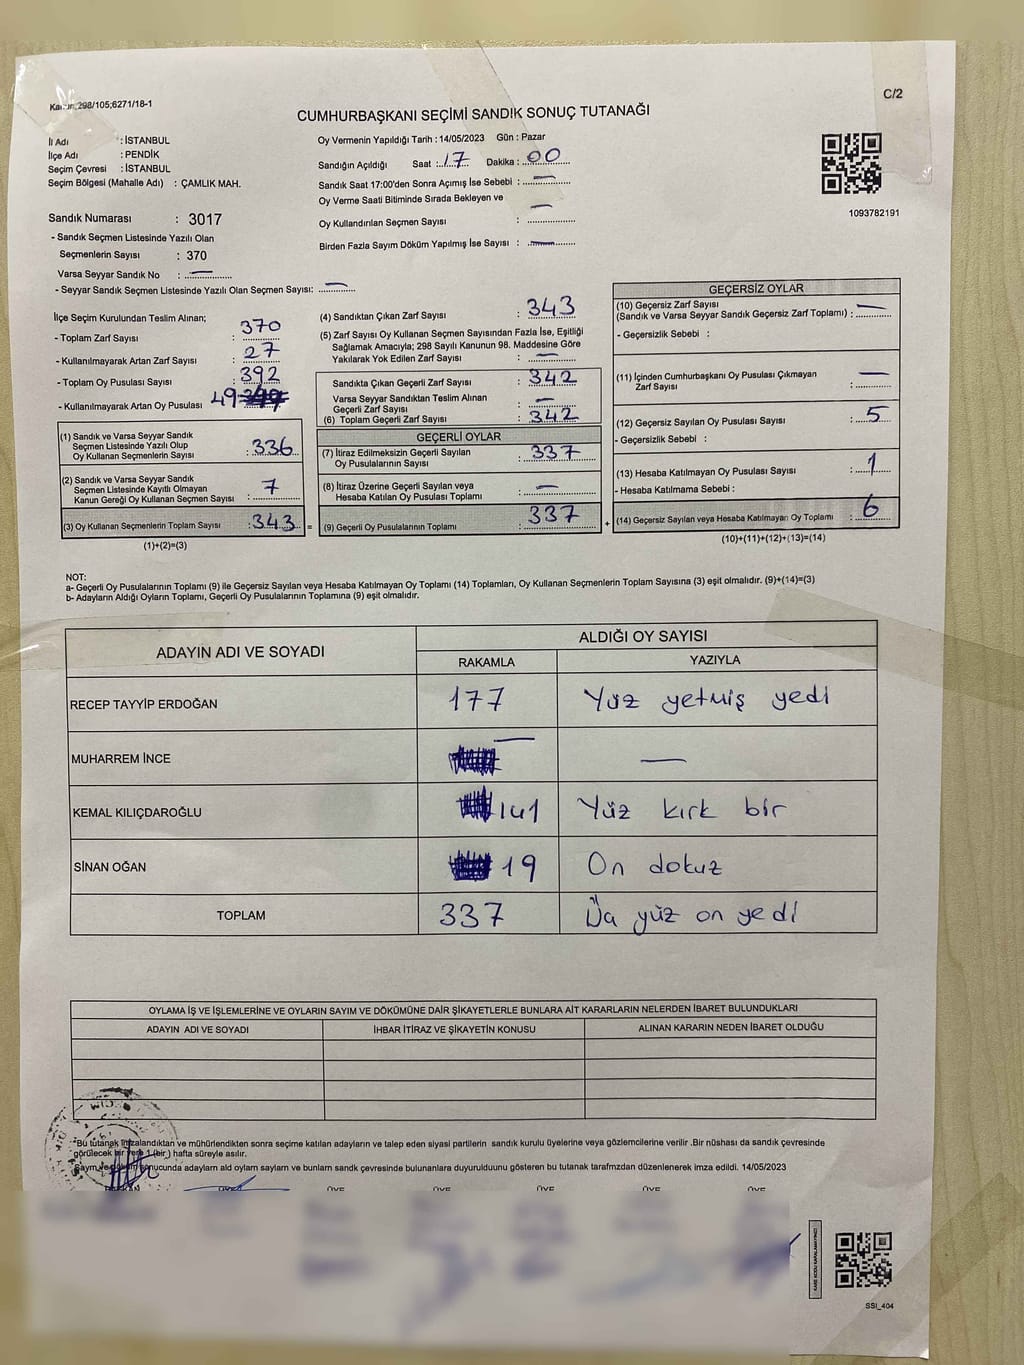 Kanun:298/105;6271/18-1
C/2
CUMHURBAŞKANI SEÇİMİ SANDIK SONUÇ TUTANAĞI
İl Adı : İSTANBUL
İlçe Adı : PENDİK
Seçim Çevresi : İSTANBUL
Seçim Bölgesi (Mahalle Adı) : ÇAMLIK MAH.
Sandık Numarası : 3017
- Sandık Seçmen Listesinde Yazılı Olan
Seçmenlerin Sayısı : 370
Varsa Seyyar Sandık No : —
- Seyyar Sandık Seçmen Listesinde Yazılı Olan Seçmen Sayısı: —
Oy Vermenin Yapıldığı Tarih : 14/05/2023 Gün : Pazar
Sandığın Açıldığı Saat : 17 Dakika : 00
Sandık Saat 17:00'den Sonra Açımış İse Sebebi : —
Oy Verme Saati Bitiminde Sırada Bekleyen ve —
Oy Kullandırılan Seçmen Sayısı :
Birden Fazla Sayım Döküm Yapılmış İse Sayısı : —
1093782191
İlçe Seçim Kurulundan Teslim Alınan;
- Toplam Zarf Sayısı : 370
- Kullanılmayarak Artan Zarf Sayısı : 27
- Toplam Oy Pusulası Sayısı : 392
- Kullanılmayarak Artan Oy Pusulası 49
(1) Sandık ve Varsa Seyyar Sandık
Seçmen Listesinde Yazılı Olup
Oy Kullanan Seçmenlerin Sayısı : 336
(2) Sandık ve Varsa Seyyar Sandık
Seçmen Listesinde Kayıtlı Olmayan
Kanun Gereği Oy Kullanan Seçmen Sayısı : 7
(3) Oy Kullanan Seçmenlerin Toplam Sayısı : 343 =
(1)+(2)=(3)
(4) Sandıktan Çıkan Zarf Sayısı : 343
(5) Zarf Sayısı Oy Kullanan Seçmen Sayısından Fazla İse, Eşitliği
Sağlamak Amacıyla; 298 Sayılı Kanunun 98. Maddesine Göre
Yakılarak Yok Edilen Zarf Sayısı : —
Sandıkta Çıkan Geçerli Zarf Sayısı : 342
Varsa Seyyar Sandıktan Teslim Alınan
Geçerli Zarf Sayısı : —
(6) Toplam Geçerli Zarf Sayısı : 342
GEÇERLİ OYLAR
(7) İtiraz Edilmeksizin Geçerli Sayılan
Oy Pusulalarının Sayısı : 337
(8) İtiraz Üzerine Geçerli Sayılan veya
Hesaba Katılan Oy Pusulası Toplamı : —
(9) Geçerli Oy Pusulalarının Toplamı : 337 +
GEÇERSİZ OYLAR
(10) Geçersiz Zarf Sayısı
(Sandık ve Varsa Seyyar Sandık Geçersiz Zarf Toplamı) : —
- Geçersizlik Sebebi :
(11) İçinden Cumhurbaşkanı Oy Pusulası Çıkmayan
Zarf Sayısı : —
(12) Geçersiz Sayılan Oy Pusulası Sayısı : 5
- Geçersizlik Sebebi :
(13) Hesaba Katılmayan Oy Pusulası Sayısı : 1
- Hesaba Katılmama Sebebi :
(14) Geçersiz Sayılan veya Hesaba Katılmayan Oy Toplamı : 6
(10)+(11)+(12)+(13)=(14)
NOT:
a- Geçerli Oy Pusulalarının Toplamı (9) ile Geçersiz Sayılan veya Hesaba Katılmayan Oy Toplamı (14) Toplamları, Oy Kullanan Seçmenlerin Toplam Sayısına (3) eşit olmalıdır. (9)+(14)=(3)
b- Adayların Aldığı Oyların Toplamı, Geçerli Oy Pusulalarının Toplamına (9) eşit olmalıdır.
ADAYIN ADI VE SOYADI
ALDIĞI OY SAYISI
RAKAMLA YAZIYLA
RECEP TAYYİP ERDOĞAN 177 Yüz yetmiş yedi
MUHARREM İNCE — —
KEMAL KILIÇDAROĞLU 141 Yüz kırk bir
SİNAN OĞAN 19 On dokuz
TOPLAM 337 yüz on yedi
OYLAMA İŞ VE İŞLEMLERİNE VE OYLARIN SAYIM VE DÖKÜMÜNE DAİR ŞİKAYETLERLE BUNLARA AİT KARARLARIN NELERDEN İBARET BULUNDUKLARI
ADAYIN ADI VE SOYADI İHBAR İTİRAZ VE ŞİKAYETİN KONUSU ALINAN KARARIN NEDEN İBARET OLDUĞU
"Bu tutanak imzalandıktan ve mühürlendikten sonra seçime katılan adayların ve talep eden siyasi partilerin sandık kurulu üyelerine veya gözlemcilerine verilir .Bir nüshası da sandık çevresinde
görülecek bir yere 1 (bir ) hafta süreyle asılır.
sonucunda adayların ald oyların sayları ve bunların sandk çevresinde bulunanlara duyurulduunu gösteren bu tutanak tarafmzdan düzenlenerek imza edildi. 14/05/2023
ÜYE ÜYE ÜYE ÜYE ÜYE ÜYE
SSI_404